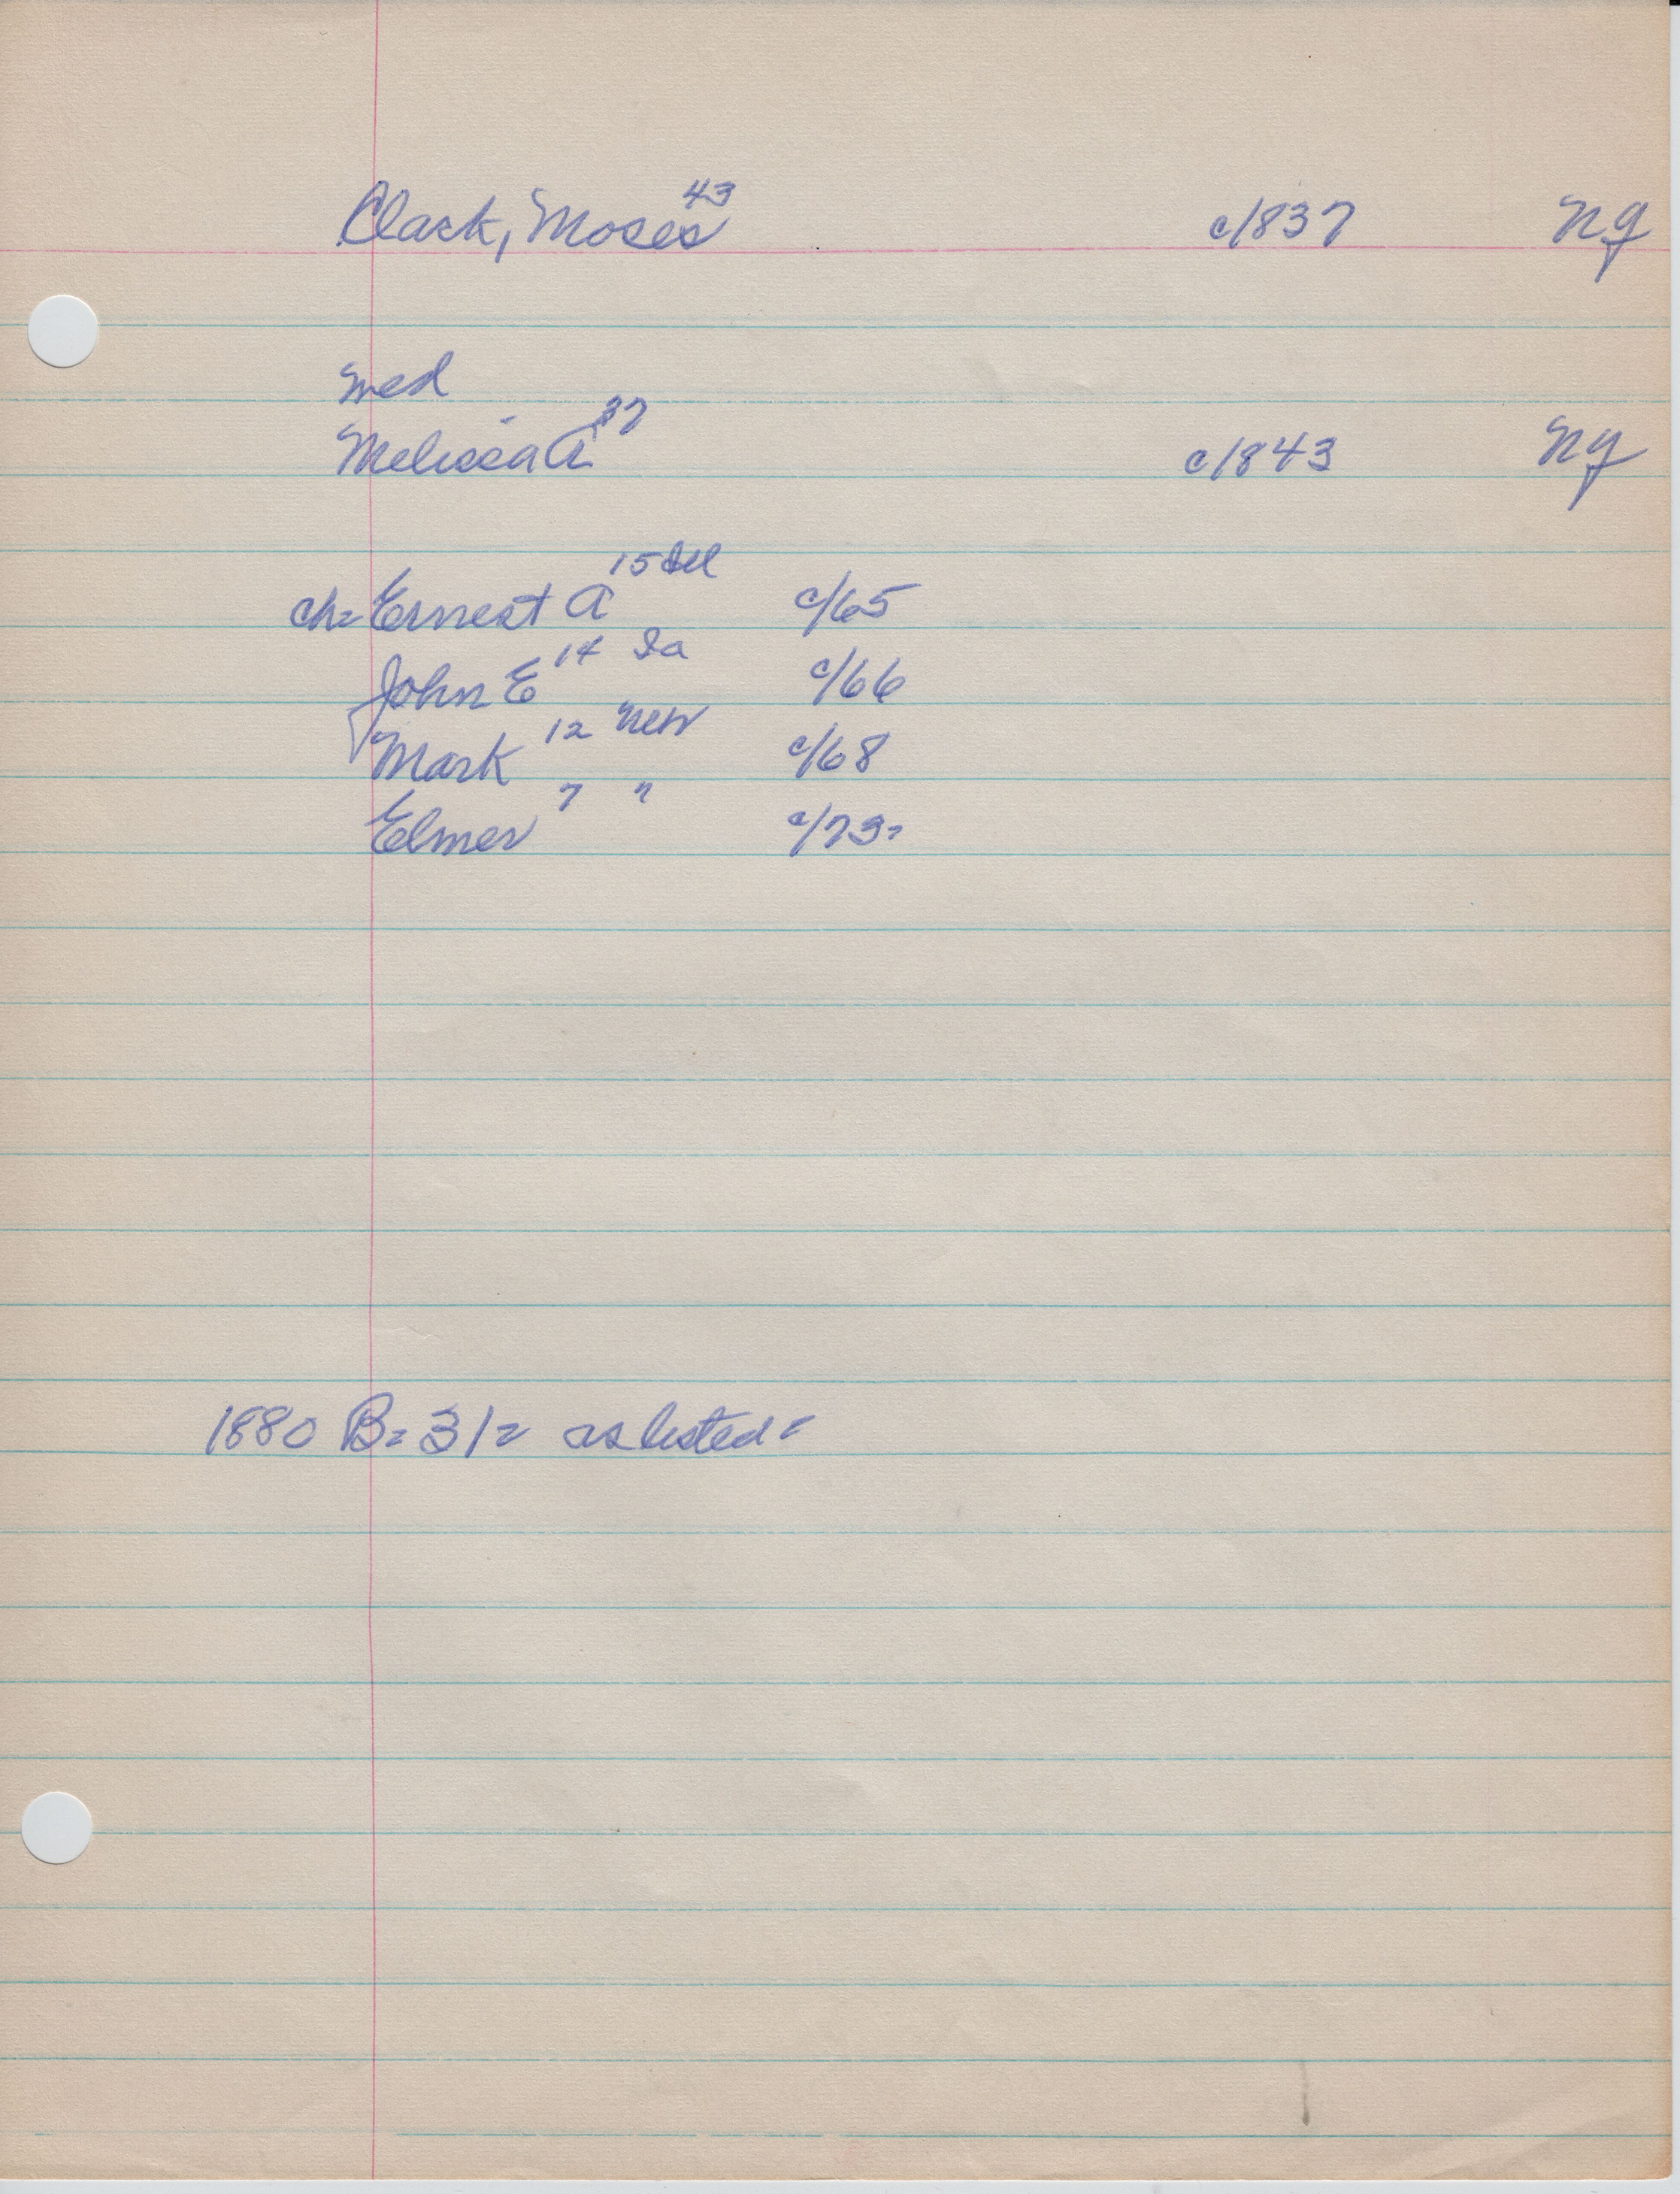 Clark, Moses 43 c/1837 Ny
med
Melissa A 37 c/1843 Ny
ch= Ernest A 15 Ill c/65
John E 14 Ia c/66
Mark 12 New c/68
Elmer 7 " c/73=
1880 B= 31= as listed=